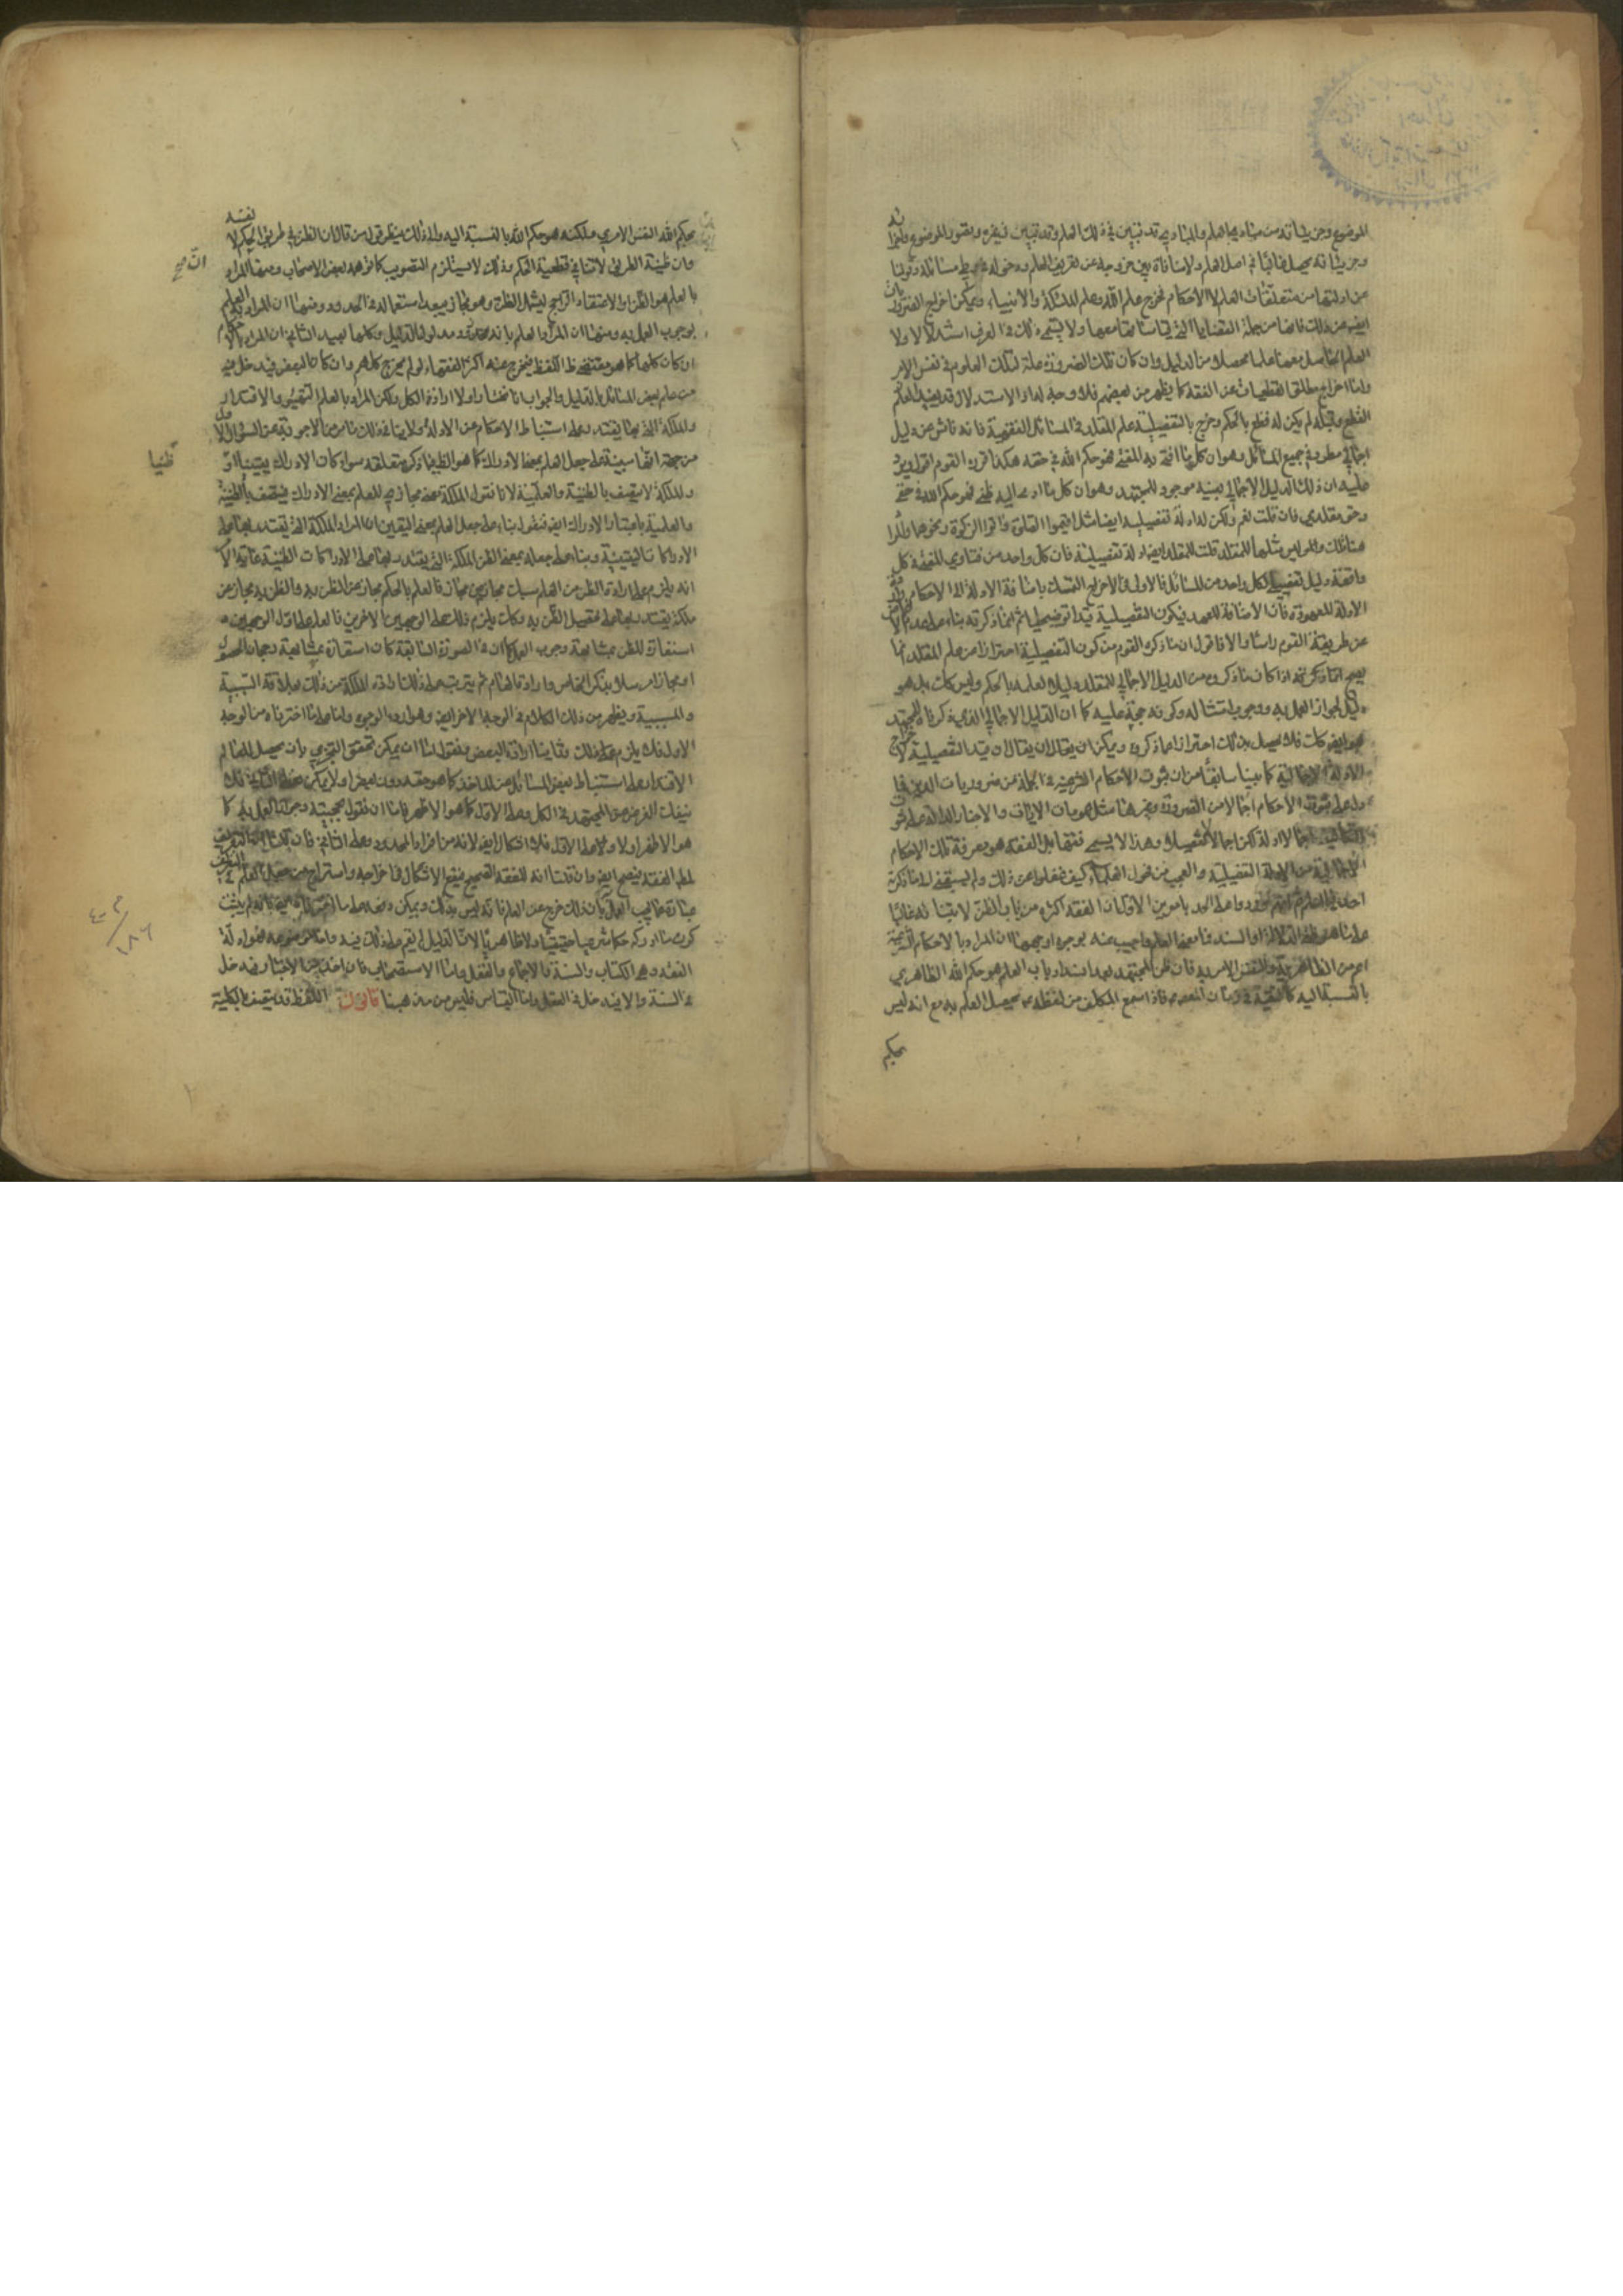 الموضوع وجزئياته من مبادى العلم والمبادى قد تبين في ذلك العلم وقد تبين في غيره وتصور الموضوع واجزائه
وجزئياته يحصل غالبا في اصل العلم ولا منافاة بين خروجه عن تعريف العلم ودخوله في مسائله وقولنا
عن ادلتها من متعلقات العلم لا الاحكام فخرج علم الله وعلم الملائكة والانبياء ويمكن اخراج الضروريات
ايضا عن ذلك فانها من جملة القضايا التي قياساتها معها ولا يسمى ذلك في العرف استدلالا ولا
العلم الحاصل معها علما محصلا من الدليل وان كان تلك الضرورة علة لتلك العلوم في نفس الامر
واما اخراج مطلق القطعيات عن الفقه كما يظهر من بعضهم فلا وجه له اذ الاستدلال قد يفيد العلم
القطع وقبله لم يكن له قطع بالحكم وخرج بالتفصيلية علم المقلد في المسائل الفقهية فانه ناش عن دليل
اجمالي مطرد في جميع المسائل وهو ان كل ما افتى به المفتي فهو حكم الله في حقه هكذا قرره القوم اقول ويرد
عليه ان ذلك الدليل الاجمالي بعينه موجود للمجتهد وهو ان كل ما ادى اليه ظني فهو حكم الله في حقي
وحق مقلدي فان قلت نعم ولكن له ادلة تفصيلية ايضا مثل اقيموا الصلوة واتوا الزكوة ونحوهما والمراد
هنا تلك وليس مثلها للمقلد قلت للمقلد ايضا ادلة تفصيلية فان كل واحد من فتاوى المفتي في كل
واقعة دليل تفصيلي لكل واحد من المسائل فالاولى في الاخراج التمسك باضافة الادلة الى الاحكام
الادلة المعهودة فان الاضافة للعهد فيكون التفصيلية قيدا توضيحيا ثم ان ما ذكرته بناء على عدم
عن طريقة القوم راسا والا فاقول ان ما ذكره القوم من كون التفصيلية احترازا عن علم المقلد انما
يصح اذا كان ما ذكروه من الدليل الاجمالي للمقلد دليلا لعلمه بالحكم وليس كك بل هو
دليل لجواز العمل به ووجوب امتثاله وكونه حجة عليه كما ان الدليل الاجمالي الذي ذكرناه للمجتهد
هو ايضا كك فلا يحصل بذلك احتراز عما ذكروه ويمكن ان يقال ان قيد التفصيلية لاخراج
الادلة الاجمالية كما بينا سابقا من ان ثبوت الاحكام الشرعية في الجملة من ضروريات الدين فما
دل على ثبوت الاحكام اجمالا من الضرورة وغيرها مثل عمومات الايات والاخبار الدالة على ثبوت
التكاليف اجمالا ادلة لكن اجمالا لا تفصيلا وهذا لا يسمى فقها بل الفقه هو معرفة تلك الاحكام
الاجمالية من الادلة التفصيلية والعجب من فحول العلماء كيف غفلوا عن ذلك ولم يسبقني الى ما ذكرته
احد فيما اعلم ثم انهم اوردوا على الحد بامرين الاول ان الفقه اكثره من باب الظن لابتنائه غالبا
على ما هو ظني الدلالة او السند فما معنى العلم واجيب عنه بوجوه اوجهها ان المراد بالاحكام الشرعية
اعم من الظاهرية والنفس الامرية فان ظن المجتهد بعد انسداد باب العلم هو حكم الله الظاهري
بالنسبة اليه كالتقية في زمان المعصوم فاذا سمع المكلف من لفظه يحصل العلم به مع انه ليس
بحكم
بحكم الله النفس الامري ولكنه هو حكم الله بالنسبة اليه والى ذلك ينظر قول من قال ان الظن في طريق الحكم لا
نفسه
وان ظنية الطريق لا تنافي قطعية الحكم وذلك لا يستلزم التصويب كما توهمه بعض الاصحاب ومنها ان المراد
بالعلم هو الظن او الاعتقاد الراجح ليشمل الظن وهو مجاز يبعد استعماله في الحدود ومنها ان المراد العلم
بوجوب العمل به ومنها ان المراد العلم بانه مدلول الدليل وكلها بعيد الثاني ان المراد بالاحكام
ان كان كلها كما هو مقتضى ظ اللفظ فيخرج عنه اكثر الفقهاء لو لم يخرج كلهم وان كان البعض فيدخل فيه
من علم بعض المسائل بالدليل والجواب انا نختار اولا ارادة الكل ولكن المراد بالعلم التهيؤ والاقتدار
والملكة التي بها يقتدر على استنباط الاحكام عن الادلة ولا ينافي ذلك ما مر من الاجوبة عن السؤال الاول
من جهة انها مبينة على جعل العلم بمعنى الادراك كما هو الظ فيما ذكر متعلقه سواء كان الادراك يقينيا او
والملكة لا يتصف بالظنية والعلمية لانا نقول الملكة معنى مجازي للعلم بمعنى الادراك فيتصف بالظنية
والعلمية باعتبار الادراك ايضا فنقول بناء على جعل العلم بمعنى اليقين ان المراد الملكة التي يقتدر بها على
الادراكات اليقينية وبناء على جعله بمعنى الظن الملكة التي يقتدر بها على الادراكات الظنية غاية الامر
انه يلزم على ارادة الظن من العلم سبك مجاز من مجاز فالعلم بالحكم مجاز عن الظن به والظن به مجاز عن
ملكة يقتدر بها على تحصيل الظن به وكك يلزم ذلك على الوجهين الاخرين فالعلم على اول الوجهين
استعارة للظن بمشابهة وجوب العمل كما ان في الصورة السابقة كان استعارة بمشابهة رجحان الحصول
او مجاز مرسل بذكر الخاص وارادة العام ثم يترتب على ذلك ارادة الملكة من ذلك بعلاقة السببية
والمسببية ويظهر من ذلك الكلام في الوجه الاخر ايضا وهو اردء الوجوه واما على ما اخترناه من الوجه
الاول فلا يلزم ذلك وثانيا ارادة البعض فنقول اما ان يمكن تحقق التجزي بان يحصل للعالم
الاقتدار على استنباط بعض المسائل عن الماخذ كما هو حقه دون بعض او لا يمكن فعلى الثاني فلا
ينفك الفرض عن المجتهد في الكل وعلى الاول كما هو الاظهر فاما ان نقول بحجيته وجواز العمل به كما
هو الاظهر او لا وعلى الاول فلا اشكال ايضا لانه من افراد المحدود وعلى الثاني فان قلنا ان التعريف
لمطلق الفقه فيصح ايضا وان قلنا انه للفقه الصحيح فيقع الاشكال في اخراجه واستراح من جعل العلم في التعريف
عبارة عما يجب العمل به بان ذلك خرج عن العلم فانه ليس بذلك ويمكن دفعه على ما اخترناه ايضا فانه لم يثبت
كون ما ادركه حكما شرعيا حقيقيا ولا ظاهريا لان الدليل لم يقم على ذلك فيه واما موضوعه فهو ادلة
الفقه وهي الكتاب والسنة والاجماع والعقل واما الاستصحاب فان اخذ من الاخبار فيدخل
في السنة والا فيدخل في العقل واما القياس فليس من مذهبنا قانون اللفظ قد يتصف بالكلية
ان صح
ظنيا